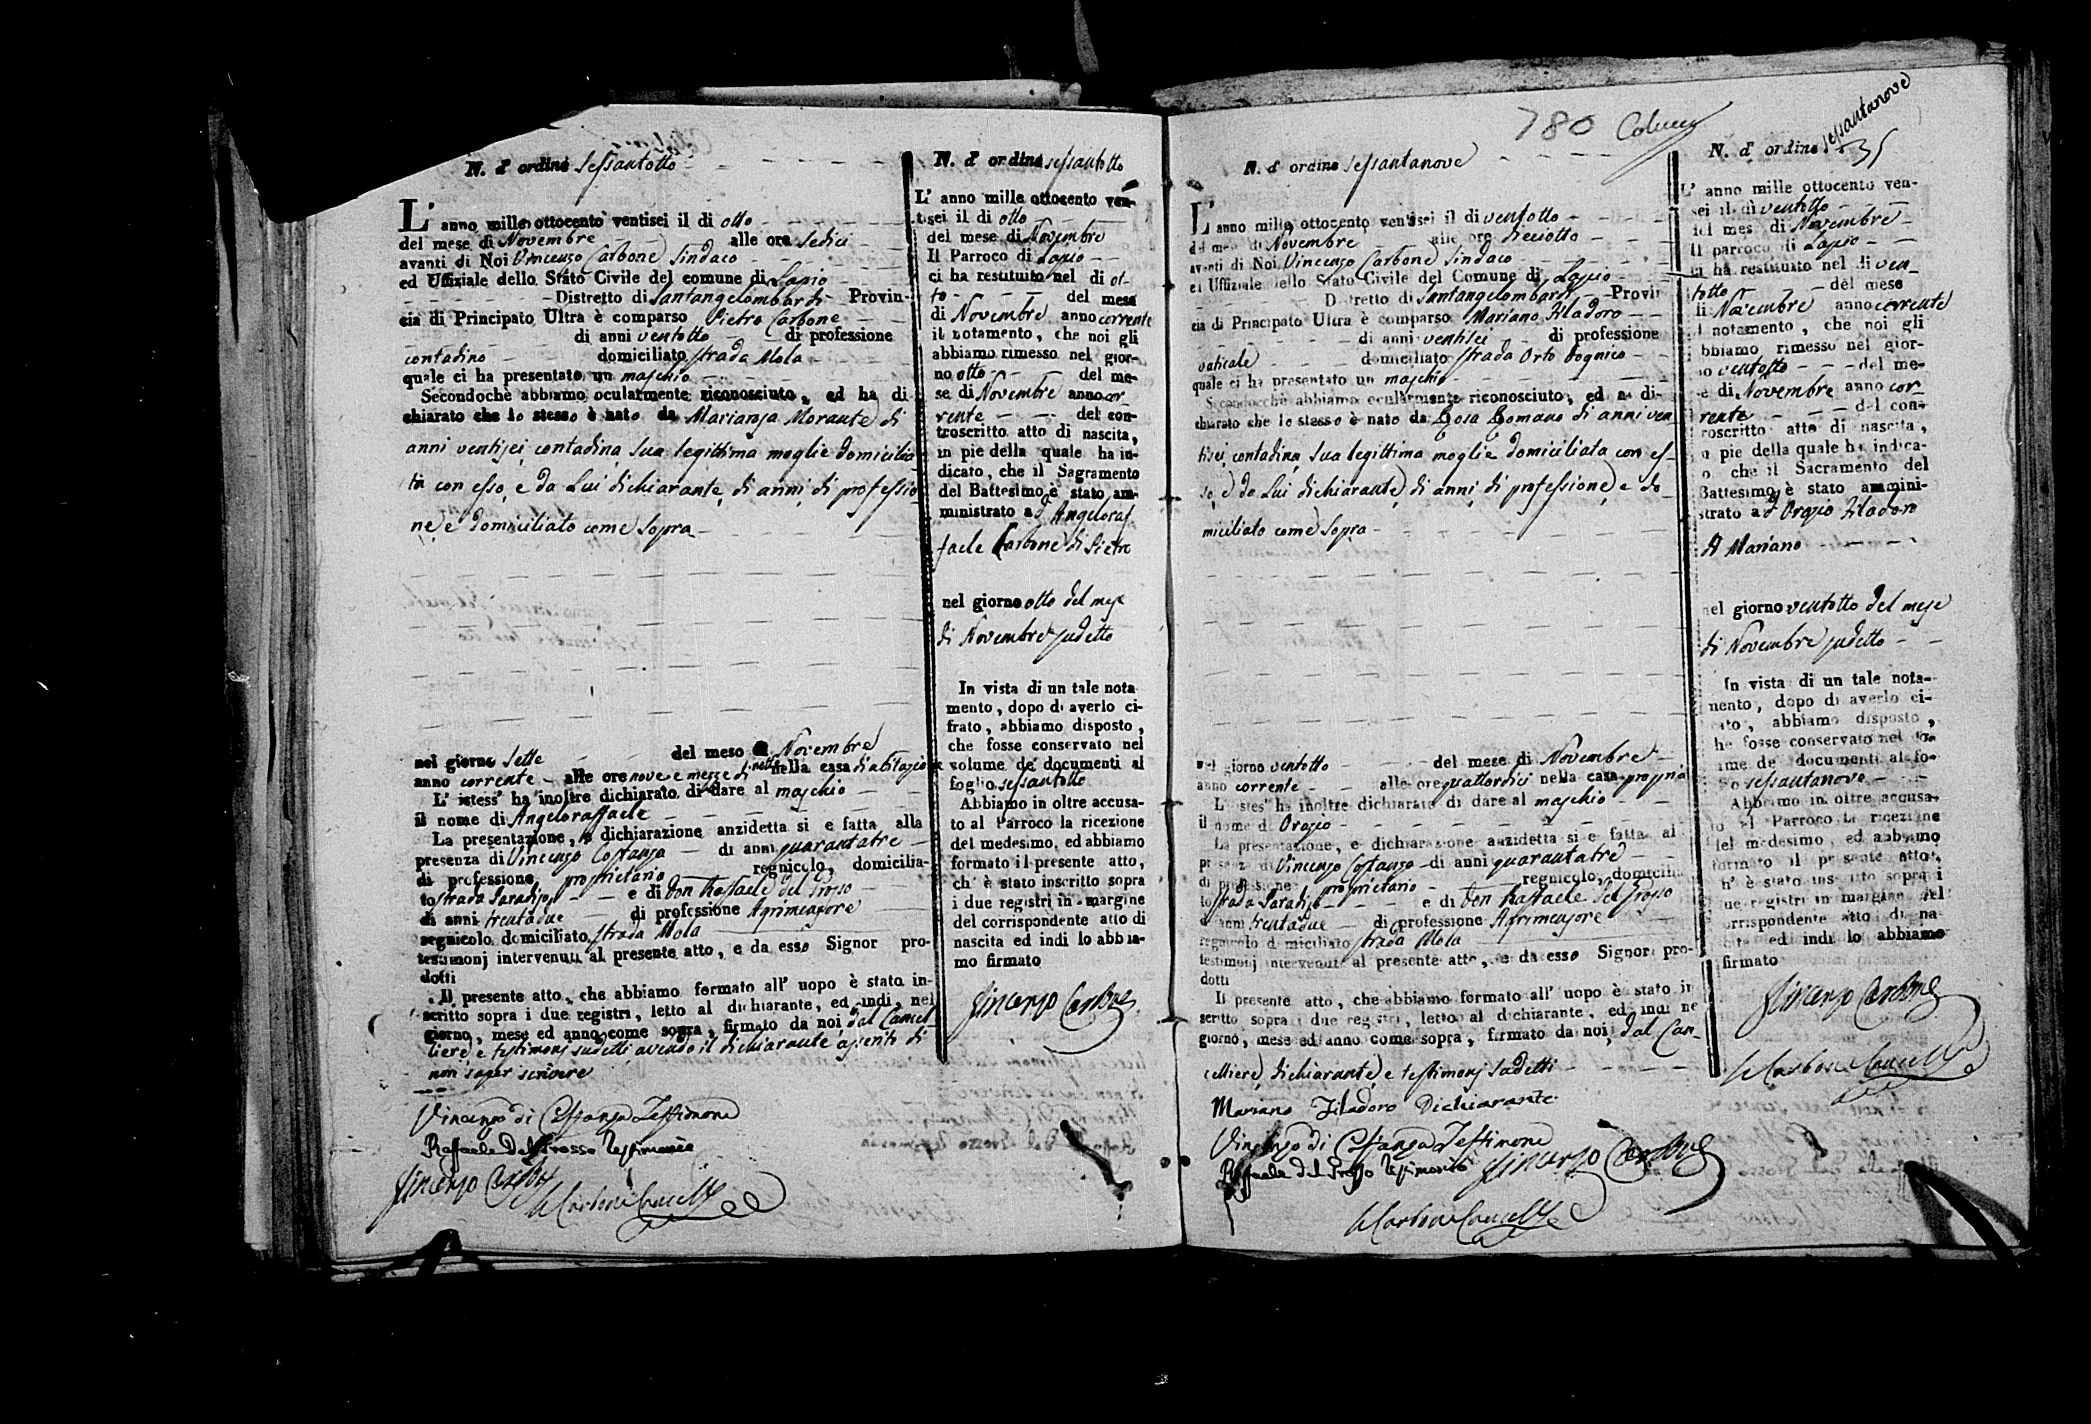 N. d' ordine Sessantotto
L' anno mille ottocento ventisei il di otto
del mese di Novembre alle ore Sedici
avanti di Noi Vincenzo Carbone Sindaco
ed Uffiziale dello Stato Civile del comune di Lapio
Distretto di Santangelombardi Provin-
cia di Principato Ultra è comparso Pietro Carbone
di anni ventotto di professione
contadino domiciliato strada Mola
quale ci ha presentato un maschio
Secondochè abbiamo ocularmente riconosciuto, ed ha di
chiarato che lo stesso è nato da Marianza Morante di
anni ventisei contadina sua legittima moglie domicilia-
ta con esso, e da Lui dichiarante, di anni, di professio-
ne, e domiciliato come sopra
nel giorno sette del mese di Novembre
anno corrente alle ore nove e mezze di notte nella casa di abitazione
L' istess' ha inoltre dichiarato di dare al maschio
il nome di Angeloraffaele
La presentazione, e dichiarazione anzidetta si e fatta alla
presenza di Vincenzo Costanza di anni quarantatre
di professione proprietario regnicolo, domicilia-
to strada Paradiso e di Don Raffaele del Grosso
di anni trentadue di professione Agrimensore
regnicolo domiciliato strada Mola
testimonj intervenuti al presente atto, e da esso Signor pro-
dotti
Il presente atto, che abbiamo formato all' uopo è stato in-
scritto sopra i due registri, letto al dichiarante, ed indi, nel
giorno, mese ed anno come sopra, firmato da noi, dal Cancel-
liere, e testimonj sudetti avendo il dichiarante asserito di
non saper scrivere
Vincenzo di Costanza Testimone
Raffaele Del Grosso Testimonio
Vincenzo Carbone
Carbone Canc.
N. d' ordine sessantotto
L' anno mille ottocento ven-
tisei il di otto
del mese di Novembre
Il Parroco di Lapio
ci ha restituito nel di ot-
to del mese
di Novembre anno corrente
il notamento, che noi gli
abbiamo rimesso nel gior-
no otto del me-
se di Novembre anno cor-
rente del con-
troscritto atto di nascita,
in pie della quale ha in-
dicato, che il Sagramento
del Battesimo è stato am-
ministrato a d' Angeloraf-
faele Carbone di Pietro
nel giorno otto del mese
di Novembre sudetto
In vista di un tale nota
mento, dopo di averlo ci-
frato, abbiamo disposto,
che fosse conservato nel
volume de' documenti al
foglio sessantotto
Abbiamo in oltre accusa-
to al Parroco la ricezione
del medesimo, ed abbiamo
formato il presente atto,
ch' è stato inscritto sopra
i due registri in margine
del corrispondente atto di
nascita ed indi lo abbia-
mo firmato
Vincenzo Carbone
780
N. d' ordine sessantanove
L' anno mille ottocento ventisei il di ventotto
del mese di Novembre alle ore dieciotto
avanti di Noi Vincenzo Carbone Sindaco
ed Uffiziale dello Stato Civile del Comune di Lapio
Distretto di Santangelombardi Provin
cia di Principato Ultra è comparso Mariano Filadoro
di anni ventisei di professione
vaticale domiciliato strada Orto Dognico
quale ci ha presentato un maschio
Secondocchè abbiamo ocularmente riconosciuto, ed ha di-
chiarato che lo stesso è nato da Rosa Romano di anni ven-
tisei, contadina, sua legittima moglie domiciliata con es-
so, e da Lui dichiarante, di anni di professione, e do-
miciliato come sopra
nel giorno ventotto del mese di Novembre
anno corrente alle ore quattordici nella casa propria
L' istes' ha inoltre dichiarato di dare al maschio
il nome di Orazio
La presentazione, e dichiarazione anzidetta si e fatta al
presenza di Vincenzo Costanzo di anni quarantatre
di professione proprietario regnicolo, domicilia
to strada Paradiso e di Don Raffaele del Grosso
di anni trentadue di professione Agrimensore
regnicolo domiciliato strada Mola
testimonj intervenuti al presente atto, e da esso Signor pro-
dotti
Il presente atto, che abbiamo formato all' uopo è stato in
scritto sopra i due registri, letto al dichiarante, ed indi ne
giorno, mese ed anno come sopra, firmato da noi, dal Can-
celliere, dichiarante, e testimonj sudetti
Mariano Filadoro Dichiarante
Vincenzo di Costanza Testimone
Raffaele del Grosso Testimonio Vincenzo Carbone
Carbone Canc.
N. d' ordine sessantanove
35
L' anno mille ottocento ven-
sei il di ventotto
del mes di Novembre
Il parroco di Lapio
ci ha restituito nel di ven-
totto del mese
di Novembre anno corrente
il notamento, che noi gli
abbiamo rimesso nel gior-
no ventotto del me-
se di Novembre anno cor-
rente del con-
troscritto atto di nascita,
in pie della quale ha indica-
to che il Sacramento del
Battesimo è stato ammini-
strato a d' Orazio Filadoro
di Mariano
nel giorno ventotto del mese
di Novembre sudetto
In vista di un tale nota-
mento, dopo di averlo ci-
frato, abbiamo disposto,
che fosse conservato nel vo-
lume de' documenti al fo-
glio sessantanove
Abbiamo in oltre accusa-
to al Parroco la ricezione
del medesimo, ed abbiamo
formato il presente atto,
ch' è stato inscritto sopra i
due registri in margine del
corrispondente atto di na-
scita ed indi lo abbiamo
firmato
Vincenzo Carbone
Carbone Canc.